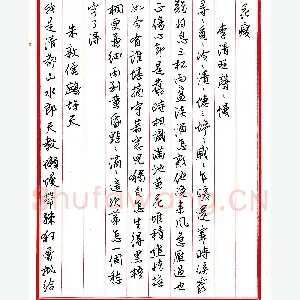 李清照聲·慢
尋·覓·冷·清·悽·慘·戚·乍暖還寒時候最
難將息三杯兩盞淡酒怎敵他晚來風急雁過也
正傷心卻是舊時相識滿地黃花堆積憔悴損
如今有誰堪摘守著窗兒獨自怎生得黑梧
桐更兼細雨到黃昏點·滴·這次第怎一個愁
字了得
朱敦儒鷓鴣天
我是清都山水郎天教懶慢帶疏狂曾批給